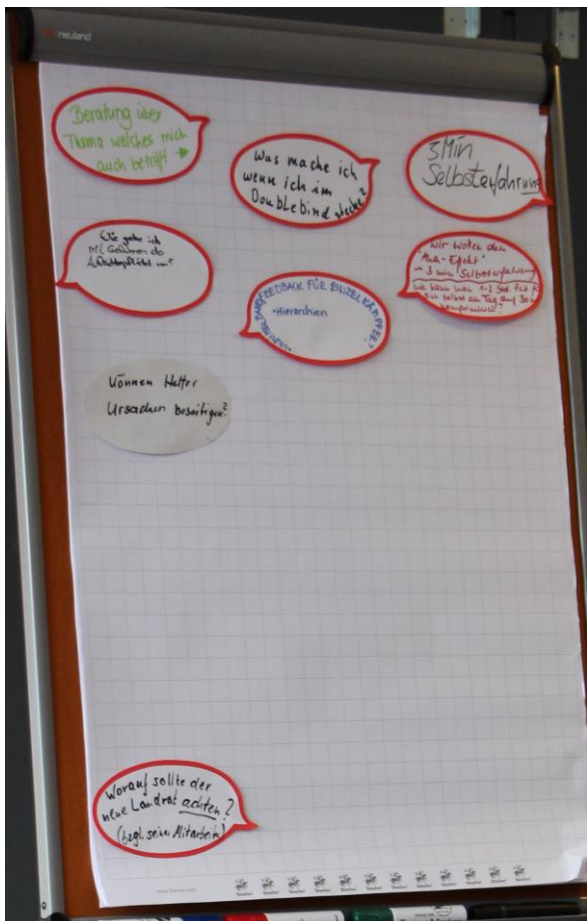 neuland
Beratung über
Thema welches mich
auch betrifft →
Was mache ich
wenn ich im
Doublebind stecke?
3 Min
Selbsterfahrung
Wie gehe ich
mit Gefahren
um?
FEEDBACK FÜR EINZELKÄMPFER?
Hierarchien
Wir wollen den
"Aha-Effekt"
→ 3 min Selbsterfahrung
wie kann man 1-2
sich selbst am Tag auf
Können Helfer
Ursachen beseitigen?
Worauf sollte der
neue Landrat achten?
(bzgl. seiner Mitarbeiter)